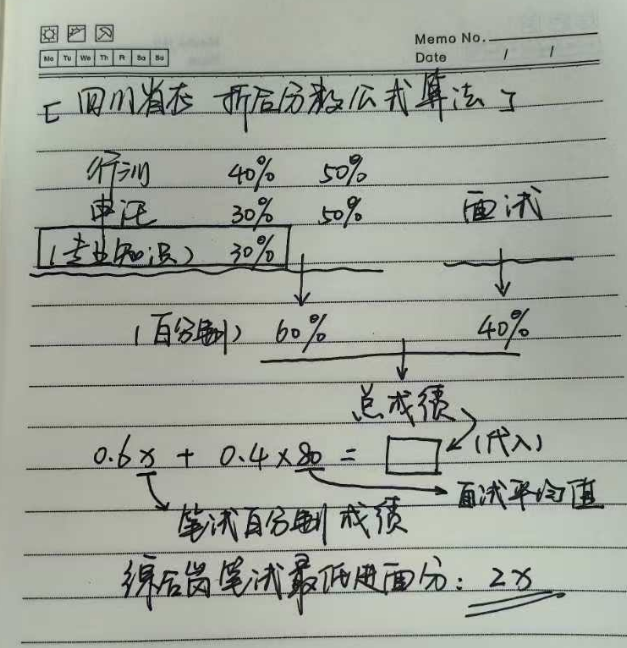 Memo No.
Mo Tu We Th Fr Sa Su
Date / /
[四川省考 折合分数公式算法]
行测 40% 50%
申论 30% 50% 面试
(专业知识) 30%
(百分制) 60% 40%
总成绩
(代入)
0.6x + 0.4×80 = □
面试平均值
笔试百分制成绩
综合岗笔试最低进面分：2x